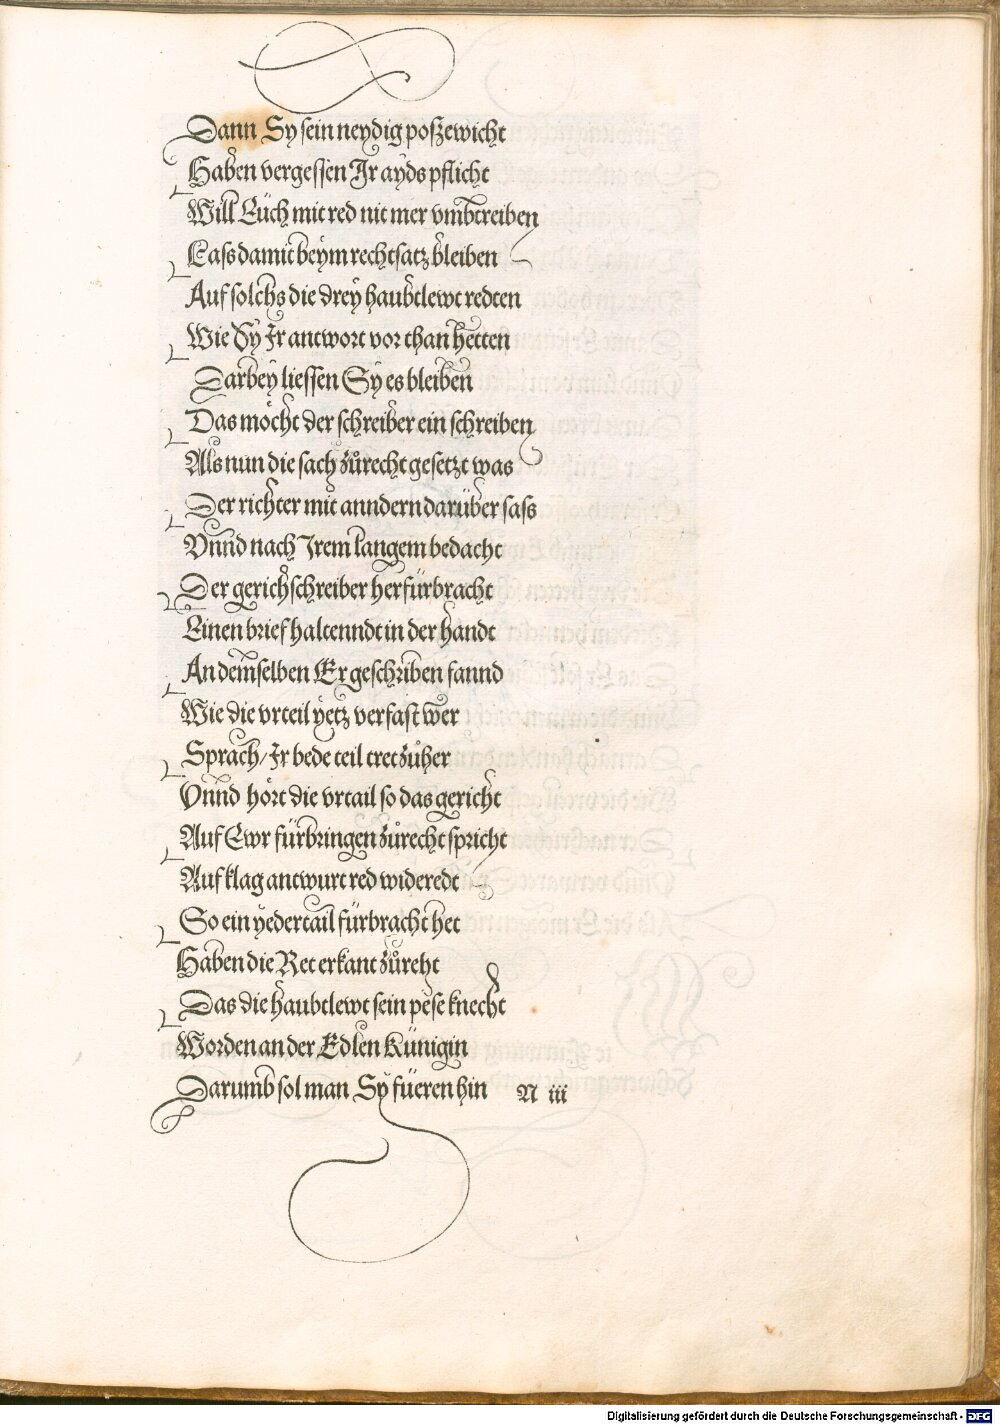 Dann Sy sein neydig poszewicht
Haben vergessen Ir ayds pflicht
Will Eüch mit red nit mer vmbtreiben
Lass damit beym rechtsatz bleiben
Auf solchs die drey haubtlewt redten
Wie Sy Ir antwort vor than hetten
Darbey liessen Sy es bleiben
Das möcht der schreiber ein schreiben
Als nun die sach zůrecht gesetzt was
Der richter mit anndern darüber sass
Vnnd nach Irem langem bedacht
Der gerichschreiber herfürbracht
Einen brief haltenndt in der handt
An demselben Er geschriben fannd
Wie die vrteil yetz verfast wer
Sprach/ Ir bede teil tret zůher
Vnnd hört die vrtail so das gericht
Auf Ewr fürbringen zůrecht spricht
Auf klag antwurt red wideredt
So ein yedertail fürbracht het
Haben die Ret erkant zůreht
Das die haubtlewt sein pese knecht
Worden an der Edlen Künigin
Darumb sol man Sy füeren hin N iii
Digitalisierung gefördert durch die Deutsche Forschungsgemeinschaft - DFG